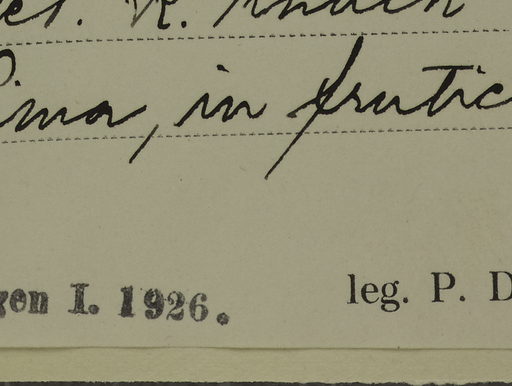 det. K.
Lima, in frutic
gen I. 1926.
leg. P. D